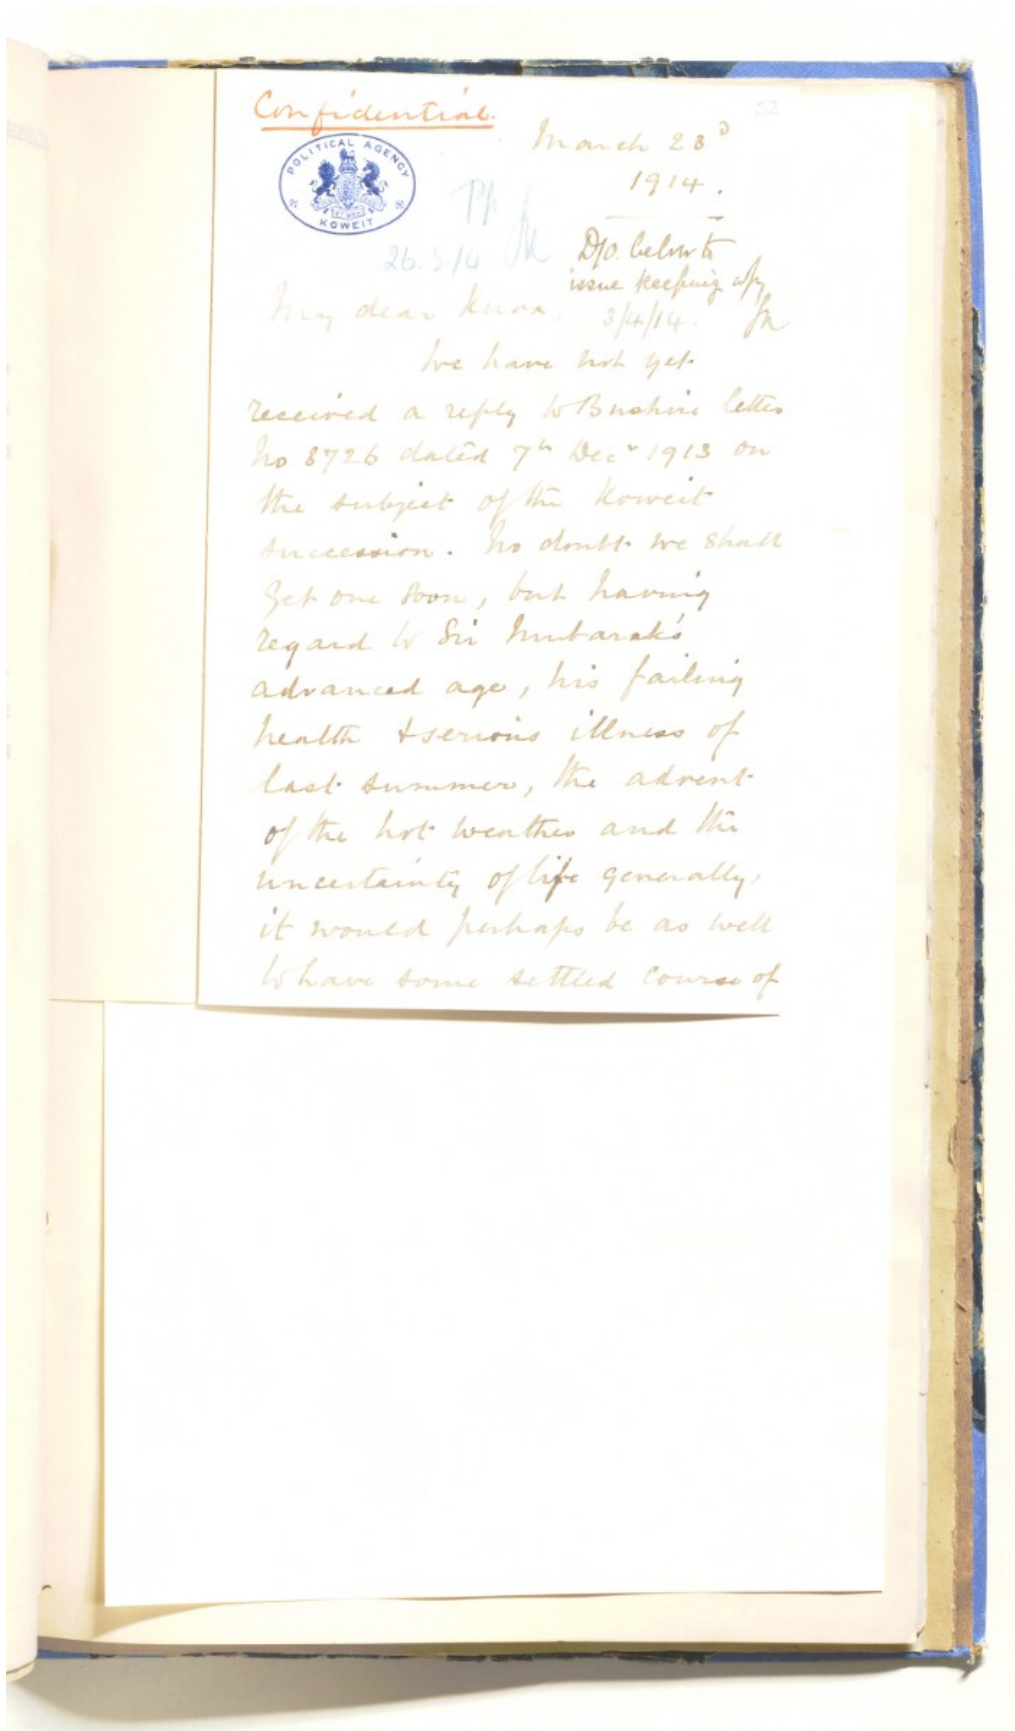 Confidential.
52
March 23ᵈ
1914.
POLITICAL AGENCY
KOWEIT
26.3.14
D/O. below to
issue keeping copy
3/4/14.
My dear Knox,
We have not yet
received a reply to Bushire letter
No 3726 dated 7th Decr 1913 on
the subject of the Koweit
succession. No doubt we shall
get one soon, but having
regard to Sir Mubarak's
advanced age, his failing
health & serious illness of
last summer, the advent
of the hot weather and the
uncertainty of life generally,
it would perhaps be as well
to have some settled course of